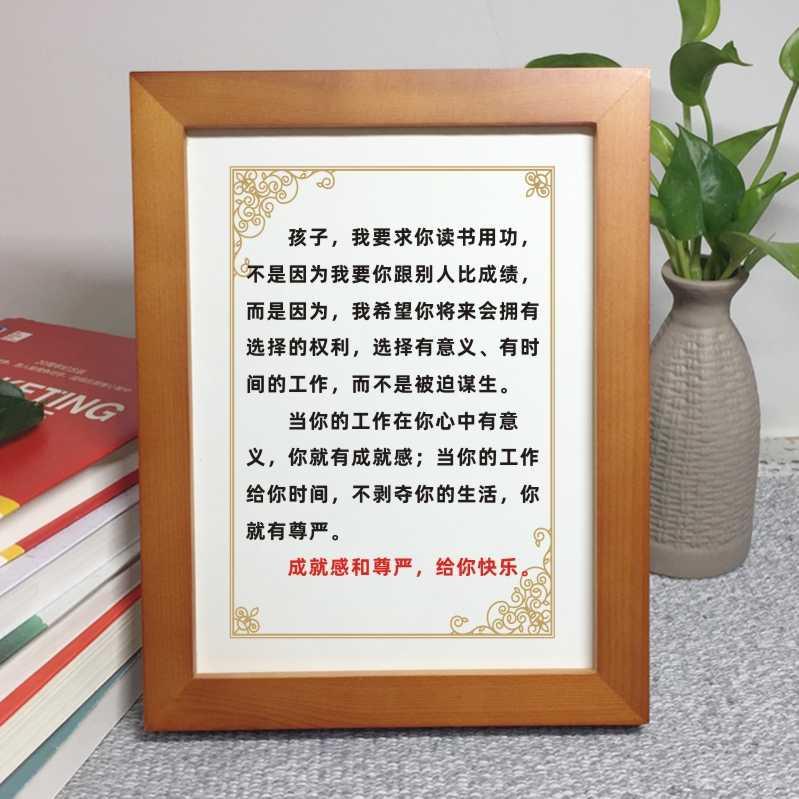 孩子，我要求你读书用功，
不是因为我要你跟别人比成绩，
而是因为，我希望你将来会拥有
选择的权利，选择有意义、有时
间的工作，而不是被迫谋生。
当你的工作在你心中有意
义，你就有成就感；当你的工作
给你时间，不剥夺你的生活，你
就有尊严。
成就感和尊严，给你快乐。
KETING